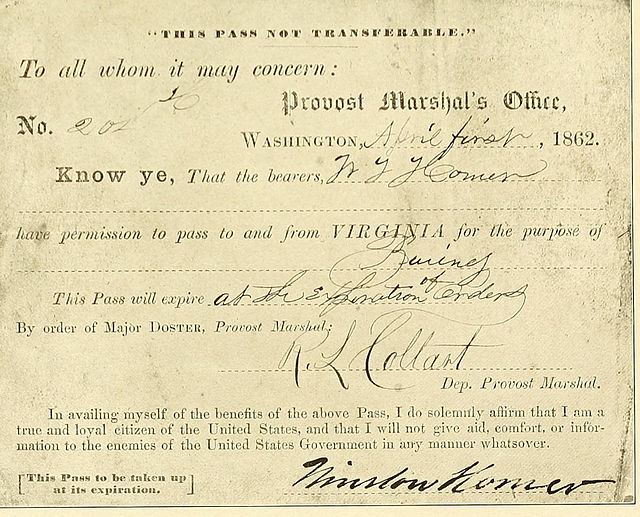 "THIS PASS NOT TRANSFERABLE."
To all whom it may concern:
Provost Marshal's Office,
No. 201
WASHINGTON, April first, 1862.
Know ye, That the bearers, W Homer
have permission to pass to and from VIRGINIA for the purpose of
This Pass will expire at the Expiration of Orders
By order of Major DOSTER, Provost Marshal:
R. L Collart
Dep. Provost Marshal.
In availing myself of the benefits of the above Pass, I do solemnly affirm that I am a
true and loyal citizen of the United States, and that I will not give aid, comfort, or infor-
mation to the enemies of the United States Government in any manner whatsover.
[This Pass to be taken up
at its expiration.]
Winslow Homer